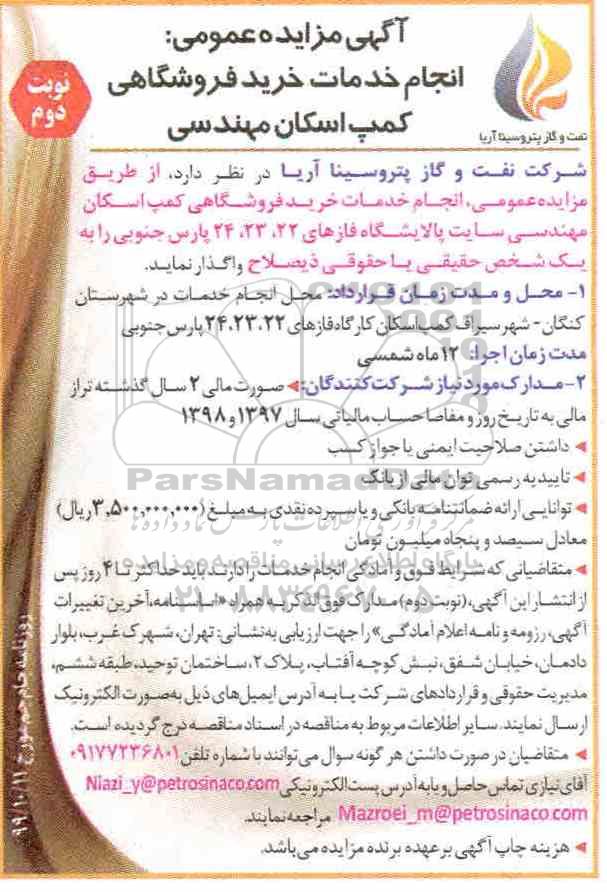 آگهی مزایده عمومی:
انجام خدمات خرید فروشگاهی
کمپ اسکان مهندسی
نوبت
دوم
نفت و گاز پتروسینا آریا
شرکت نفت و گاز پتروسینا آریا در نظر دارد، از طریق
مزایده عمومی، انجام خدمات خرید فروشگاهی کمپ اسکان
مهندسی سایت پالایشگاه فازهای ۲۲، ۲۳، ۲۴ پارس جنوبی را به
یک شخص حقیقی یا حقوقی ذیصلاح واگذار نماید.
۱- محل و مدت زمان قرارداد: محل انجام خدمات در شهرستان
کنگان- شهر سیراف کمپ اسکان کارگاه فازهای ۲۴،۲۳،۲۲ پارس جنوبی
مدت زمان اجرا: ۱۲ ماه شمسی
۲- مدارک مورد نیاز شرکت کنندگان: ◄ صورت مالی ۲ سال گذشته تراز
مالی به تاریخ روز و مفاصا حساب مالیاتی سال ۱۳۹۷ و ۱۳۹۸
◄ داشتن صلاحیت ایمنی یا جواز کسب
◄ تاییدیه رسمی توان مالی از بانک
◄ توانایی ارائه ضمانتنامه بانکی و یا سپرده نقدی به مبلغ (۳,۵۰۰,۰۰۰,۰۰۰ ریال)
معادل سیصد و پنجاه میلیون تومان
◄ متقاضیانی که شرایط فوق و آمادگی انجام خدمات را دارند باید حداکثر تا ۴ روز پس
از انتشار این آگهی، (نوبت دوم) مدارک فوق الذکر به همراه «اساسنامه، آخرین تغییرات
آگهی، رزومه و نامه اعلام آمادگی» را جهت ارزیابی به نشانی: تهران، شهرک غرب، بلوار
دادمان، خیابان شفق، نبش کوچه آفتاب، پلاک ۲، ساختمان توحید، طبقه ششم،
مدیریت حقوقی و قراردادهای شرکت یا به آدرس ایمیل‌های ذیل به صورت الکترونیک
ارسال نمایند. سایر اطلاعات مربوط به مناقصه در اسناد مناقصه درج گردیده است.
◄ متقاضیان در صورت داشتن هر گونه سوال می‌توانند با شماره تلفن ۰۹۱۷۷۲۳۶۸۰۱
آقای نیازی تماس حاصل و یا به آدرس پست الکترونیکی Niazi_y@petrosinaco.com
Mazroei_m@petrosinaco.com مراجعه نمایند.
◄ هزینه چاپ آگهی بر عهده برنده مزایده می‌باشد.
روزنامه جام جم مورخ ۹۹/۱۰/۱۱
ParsNamadData
پایگاه اطلاع رسانی مناقصه و مزایده
۰۲۱-۸۸۳۴۹۶۷۰-۵